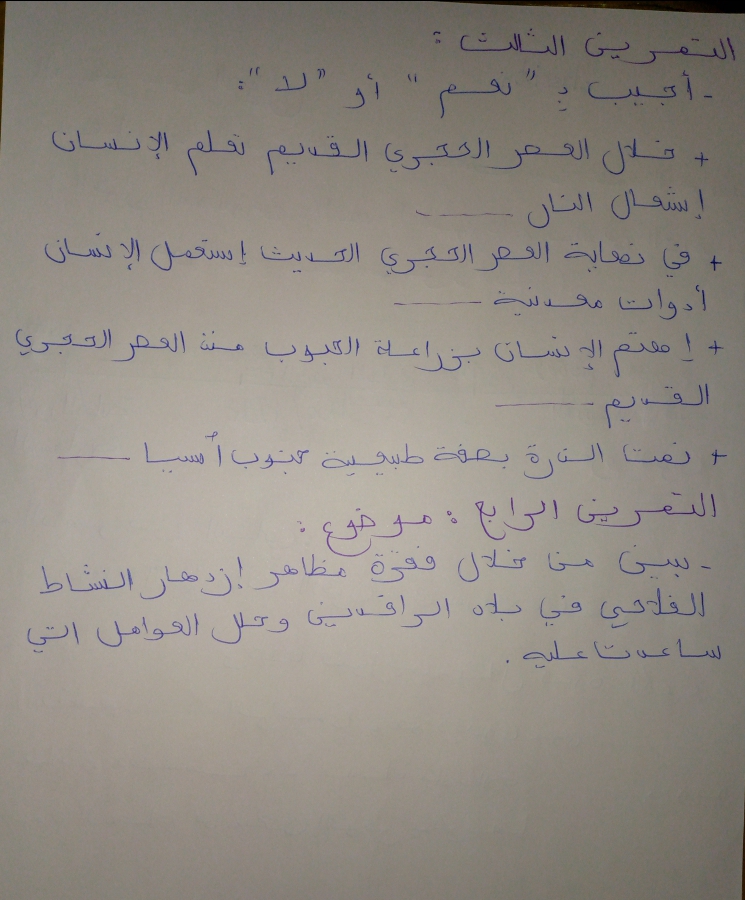 التمرين الثالث :
- أجيب بـ "نعم" أو "لا" :
+ خلال العصر الحجري القديم تعلم الإنسان
إشعال النار
+ في نهاية العصر الحجري الحديث إستعمل الإنسان
أدوات معدنية
+ إهتم الإنسان بزراعة الحبوب منذ العصر الحجري
القديم
+ نمت الذرة بصفة طبيعية جنوب أسيا
التمرين الرابع : موضوع :
- بين من خلال فقرة مظاهر إزدهار النشاط
الفلاحي في بلاد الرافدين وحلل العوامل التي
ساعدت عليه .